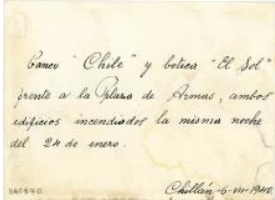 Banco "Chile" y botica "El Sol"
frente a la Plaza de Armas, ambos
edificios incendiados la misma noche
del 24 de enero.
Chillán-6-VII-1940.